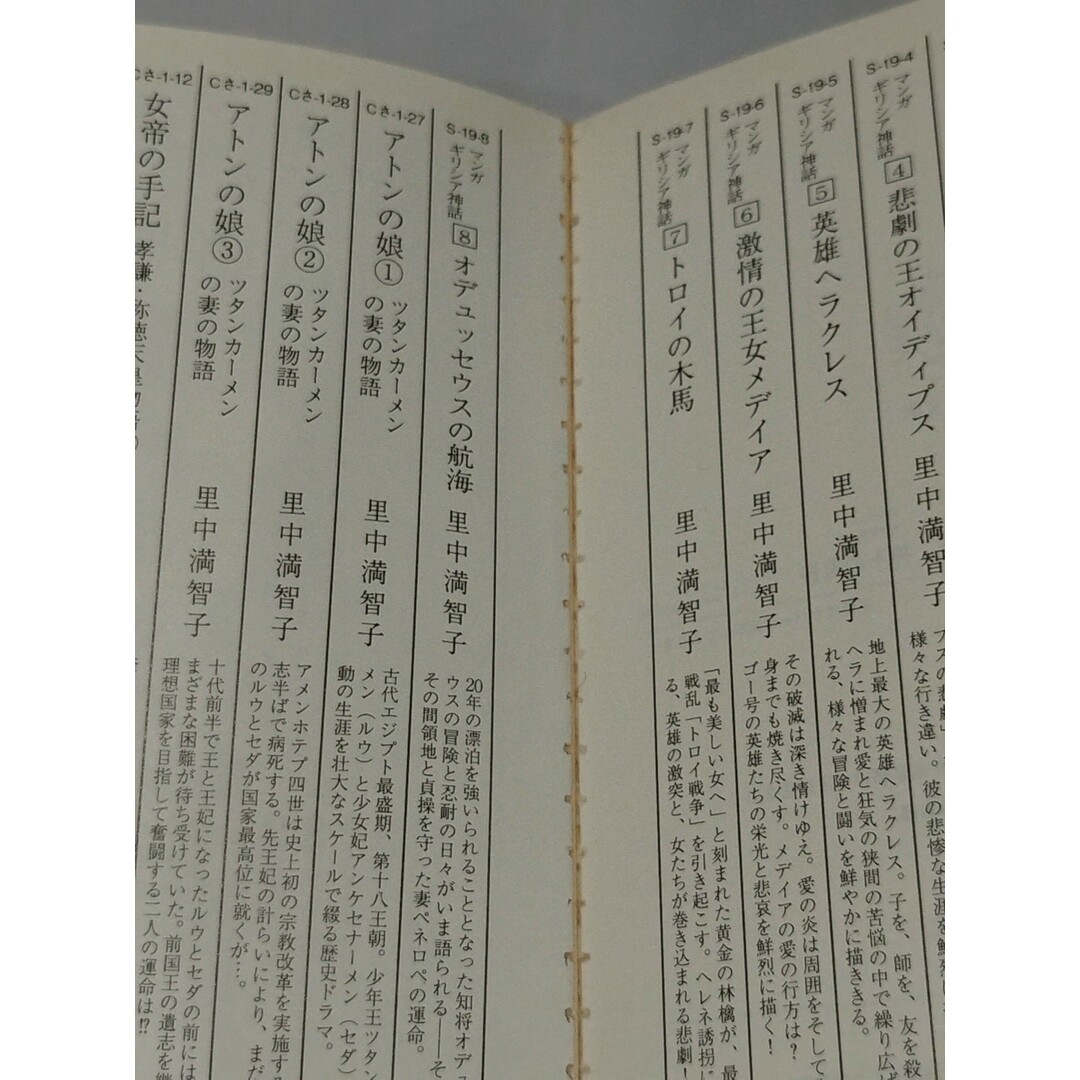 S-19-4
マンガ
ギリシア神話 4 悲劇の王オイディプス 里中満智子
様々な行き違い。彼の悲惨な生涯を鮮烈に
S-19-5
マンガ
ギリシア神話 5 英雄ヘラクレス 里中満智子
地上最大の英雄ヘラクレス。子を、師を、友を殺
ヘラに憎まれ愛と狂気の狭間の苦悩の中で繰り広げ
れる、様々な冒険と闘いを鮮やかに描ききる。
S-19-6
マンガ
ギリシア神話 6 激情の王女メデイア 里中満智子
その破滅は深き情けゆえ。愛の炎は周囲をそして
身までも焼き尽くす。メデイアの愛の行方は?
ゴー号の英雄たちの栄光と悲哀を鮮烈に描く!
S-19-7
マンガ
ギリシア神話 7 トロイの木馬 里中満智子
「最も美しい女へ」と刻まれた黄金の林檎が、最
戦乱「トロイ戦争」を引き起こす。ヘレネ誘拐に
る、英雄の激突と、女たちが巻き込まれる悲劇!
S-19-8
マンガ
ギリシア神話 8 オデュッセウスの航海 里中満智子
20年の漂泊を強いられることとなった知将オデュ
ウスの冒険と忍耐の日々がいま語られる——そ
その間領地と貞操を守った妻ペネロペの運命。
Cさ-1-27
アトンの娘① ツタンカーメンの妻の物語 里中満智子
古代エジプト最盛期、第十八王朝。少年王ツタン
メン(ルウ)と少女妃アンケセナーメン(セダ)
動の生涯を壮大なスケールで綴る歴史ドラマ。
Cさ-1-28
アトンの娘② ツタンカーメンの妻の物語 里中満智子
アメンホテプ四世は史上初の宗教改革を実施す
志半ばで病死する。先王妃の計らいにより、まだ
のルウとセダが国家最高位に就くが…。
Cさ-1-29
アトンの娘③ ツタンカーメンの妻の物語 里中満智子
十代前半で王と王妃になったルウとセダの前には
まざまな困難が待ち受けていた。前国王の遺志を継
理想国家を目指して奮闘する二人の運命は!?
Cさ-1-12
女帝の手記 孝謙・称徳天皇物語